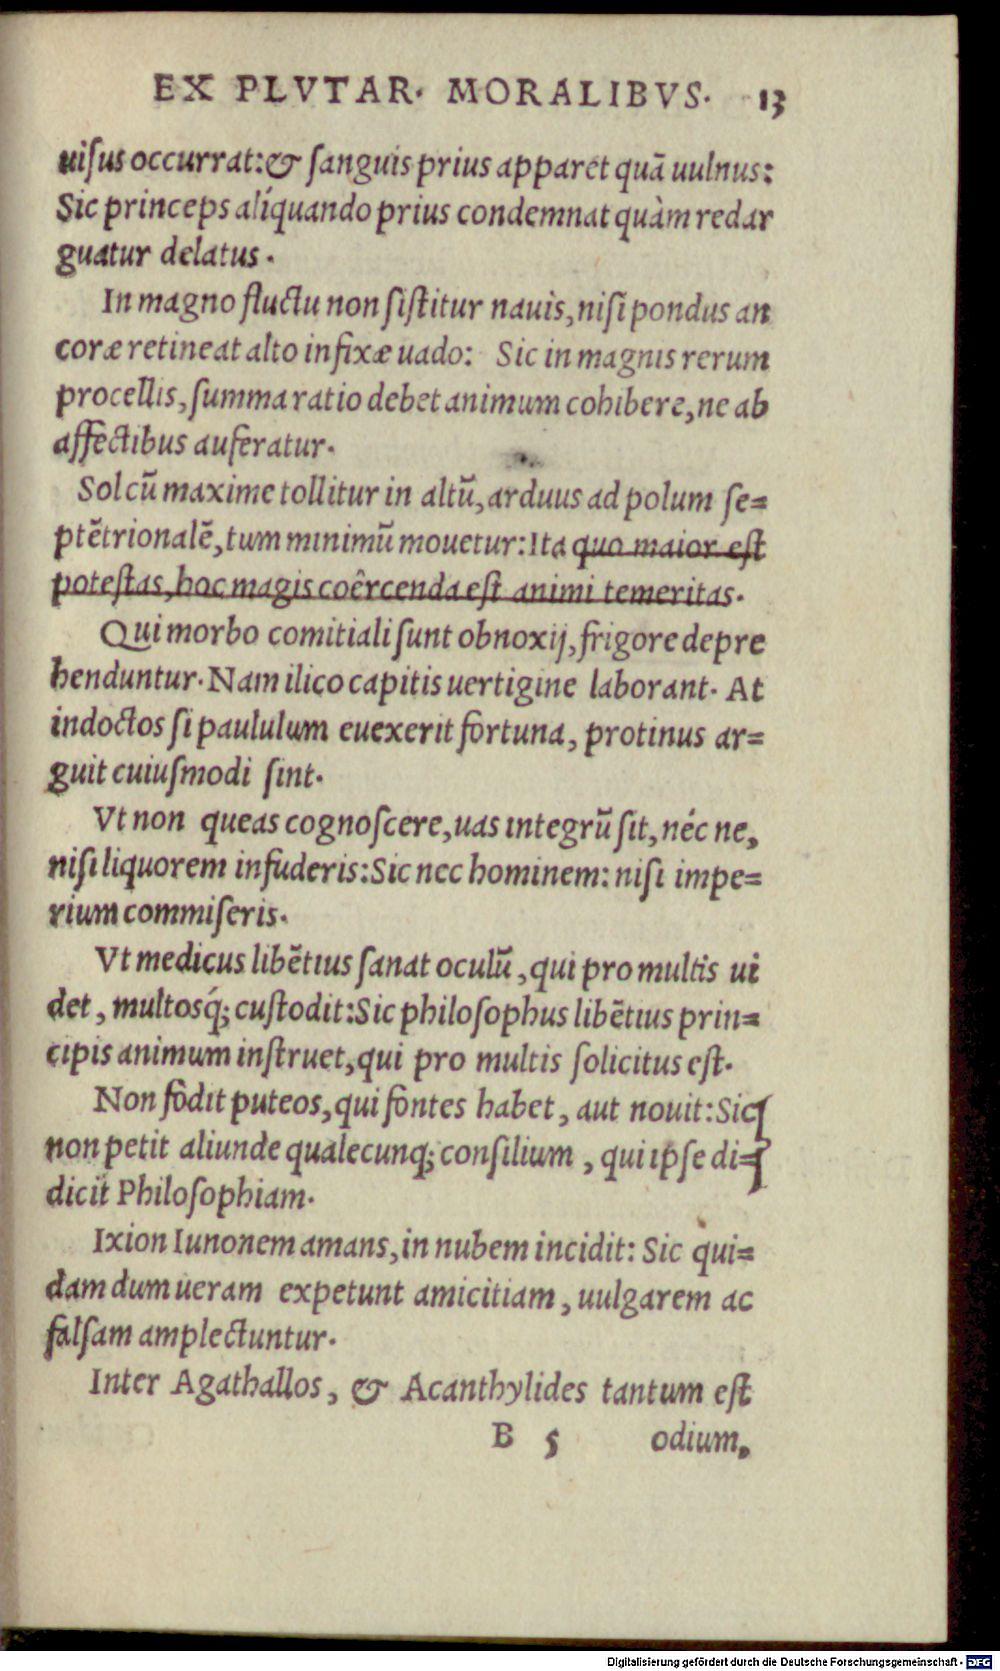 EX PLVTAR. MORALIBVS. 13
uiſus occurrat:& ſanguis prius apparet quã uulnus:
Sic princeps aliquando prius condemnat quàm redar
guatur delatus.
In magno fluctu non ſiſtitur nauis, niſi pondus an
coræ retineat alto infixæ uado: Sic in magnis rerum
procellis, ſumma ratio debet animum cohibere, ne ab
affectibus auferatur.
Sol cũ maxime tollitur in altũ, arduus ad polum ſe=
ptẽtrionalẽ, tum minimũ mouetur: Ita quo maior eſt
poteſtas, hoc magis coêrcenda eſt animi temeritas.
Qui morbo comitiali ſunt obnoxij, frigore depre
henduntur. Nam ilico capitis uertigine laborant. At
indoctos ſi paululum euexerit fortuna, protinus ar=
guit cuiuſmodi ſint.
Vt non queas cognoſcere, uas integrũ ſit, néc ne,
niſi liquorem infuderis: Sic nec hominem: niſi impe=
rium commiſeris.
Vt medicus libẽtius ſanat oculũ, qui pro multis ui
det, multosq́; cuſtodit: Sic philoſophus libẽtius prin=
cipis animum inſtruet, qui pro multis ſolicitus eſt.
Non fodit puteos, qui fontes habet, aut nouit: Sic
non petit aliunde qualecunq; conſilium, qui ipſe di=
dicit Philoſophiam.
Ixion Iunonem amans, in nubem incidit: Sic qui=
dam dum ueram expetunt amicitiam, uulgarem ac
falſam amplectuntur.
Inter Agathallos, & Acanthylides tantum eſt
B 5 odium,
Digitalisierung gefördert durch die Deutsche Forschungsgemeinschaft - DFG